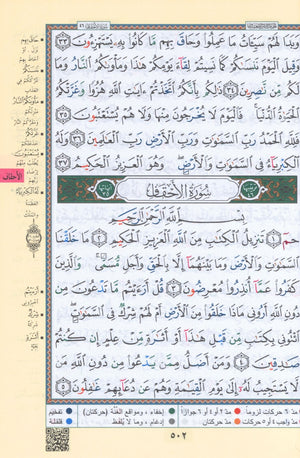 وَبَدَا لَهُمْ سَيِّـَٔاتُ مَا عَمِلُوا۟ وَحَاقَ بِهِم مَّا كَانُوا۟ بِهِۦ يَسْتَهْزِءُونَ ٣٣
وَقِيلَ ٱلْيَوْمَ نَنسَىٰكُمْ كَمَا نَسِيتُمْ لِقَآءَ يَوْمِكُمْ هَٰذَا وَمَأْوَىٰكُمُ ٱلنَّارُ وَمَا
لَكُم مِّن نَّٰصِرِينَ ٣٤ ذَٰلِكُم بِأَنَّكُمُ ٱتَّخَذْتُمْ ءَايَٰتِ ٱللَّهِ هُزُوًا وَغَرَّتْكُمُ
ٱلْحَيَوٰةُ ٱلدُّنْيَا ۚ فَٱلْيَوْمَ لَا يُخْرَجُونَ مِنْهَا وَلَا هُمْ يُسْتَعْتَبُونَ ٣٥
فَلِلَّهِ ٱلْحَمْدُ رَبِّ ٱلسَّمَٰوَٰتِ وَرَبِّ ٱلْأَرْضِ رَبِّ ٱلْعَٰلَمِينَ ٣٦ وَلَهُ
ٱلْكِبْرِيَآءُ فِى ٱلسَّمَٰوَٰتِ وَٱلْأَرْضِ ۖ وَهُوَ ٱلْعَزِيزُ ٱلْحَكِيمُ ٣٧
سُورَةُ الأَحْقَافِ
بِسْمِ ٱللَّهِ ٱلرَّحْمَٰنِ ٱلرَّحِيمِ
حمٓ ١ تَنزِيلُ ٱلْكِتَٰبِ مِنَ ٱللَّهِ ٱلْعَزِيزِ ٱلْحَكِيمِ ٢ مَا خَلَقْنَا
ٱلسَّمَٰوَٰتِ وَٱلْأَرْضَ وَمَا بَيْنَهُمَآ إِلَّا بِٱلْحَقِّ وَأَجَلٍ مُّسَمًّى ۚ وَٱلَّذِينَ
كَفَرُوا۟ عَمَّآ أُنذِرُوا۟ مُعْرِضُونَ ٣ قُلْ أَرَءَيْتُم مَّا تَدْعُونَ مِن
دُونِ ٱللَّهِ أَرُونِى مَاذَا خَلَقُوا۟ مِنَ ٱلْأَرْضِ أَمْ لَهُمْ شِرْكٌ فِى ٱلسَّمَٰوَٰتِ ۖ
ٱئْتُونِى بِكِتَٰبٍ مِّن قَبْلِ هَٰذَآ أَوْ أَثَٰرَةٍ مِّنْ عِلْمٍ إِن كُنتُمْ
صَٰدِقِينَ ٤ وَمَنْ أَضَلُّ مِمَّن يَدْعُوا۟ مِن دُونِ ٱللَّهِ مَن
لَّا يَسْتَجِيبُ لَهُۥٓ إِلَىٰ يَوْمِ ٱلْقِيَٰمَةِ وَهُمْ عَن دُعَآئِهِمْ غَٰفِلُونَ ٥
الأحقاف
مدّ ٦ حركات لزوماً
مدّ ٢ أو ٤ أو ٦ جوازاً
إخفاء ، ومواقع الغُنَّة (حركتان)
تفخيم
مدّ واجب ٤ أو ٥ حركات
مدّ حركتان
إدغام ، وما لا يُلفَظ
قلقلة
٥٠٢